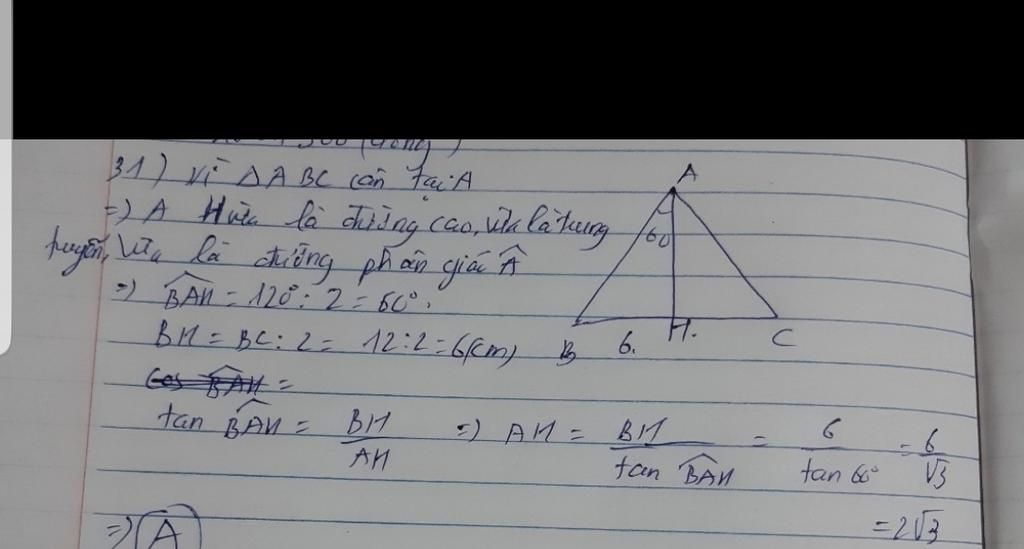 31) Vì ΔABC cân tại A
=) A H vừa là đường cao, vừa là trung
tuyến, vừa là đường phân giác Â
=) \widehat{BAH} = 120° : 2 = 60°.
BH = BC : 2 = 12 : 2 = 6(cm)
A
60
B 6. H. C
Cos \widehat{BAH} =
tan \widehat{BAH} = BH/AH =) AH = BH/tan \widehat{BAH} = 6/tan 60° = 6/√3
= 2√3
=) A